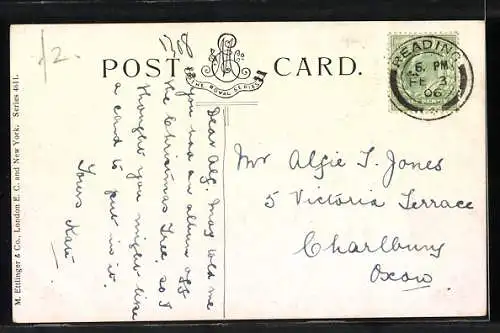 1/2.
POST CARD.
THE ROYAL SERIES
READING
6 PM
FE 3
06
M. Ettlinger & Co., London E. C. and New York. Series 4611.
Dear Alg. May told me
you had an album off
the Christmas Tree. so I
thought you might like
a card to put in it.
Yours Kate
Mr Algie T. Jones
5 Victoria Terrace
Charlbury
Oxon